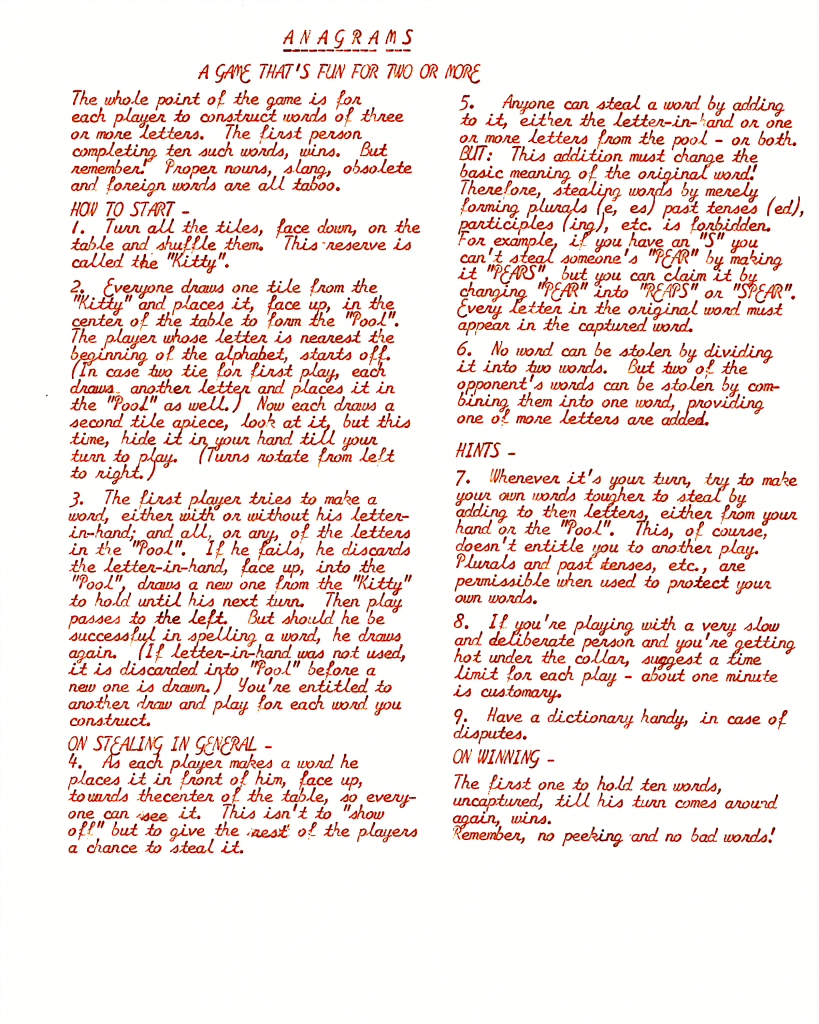 ANAGRAMS
A GAME THAT'S FUN FOR TWO OR MORE
The whole point of the game is for
each player to construct words of three
or more letters. The first person
completing ten such words, wins. But
remember! Proper nouns, slang, obsolete
and foreign words are all taboo.
HOW TO START -
1. Turn all the tiles, face down, on the
table and shuffle them. This reserve is
called the "Kitty".
2. Everyone draws one tile from the
"Kitty" and places it, face up, in the
center of the table to form the "Pool".
The player whose letter is nearest the
beginning of the alphabet, starts off.
(In case two tie for first play, each
draws another letter and places it in
the "Pool" as well.) Now each draws a
second tile apiece, look at it, but this
time, hide it in your hand till your
turn to play. (Turns rotate from left
to right.)
3. The first player tries to make a
word, either with or without his letter-
in-hand; and all, or any, of the letters
in the "Pool". If he fails, he discards
the letter-in-hand, face up, into the
"Pool", draws a new one from the "Kitty"
to hold until his next turn. Then play
passes to the left. But should he be
successful in spelling a word, he draws
again. (If letter-in-hand was not used,
it is discarded into "Pool" before a
new one is drawn.) You're entitled to
another draw and play for each word you
construct.
ON STEALING IN GENERAL -
4. As each player makes a word he
places it in front of him, face up,
towards thecenter of the table, so every-
one can see it. This isn't to "show
off" but to give the rest of the players
a chance to steal it.
5. Anyone can steal a word by adding
to it, either the letter-in-hand or one
or more letters from the pool - or both.
BUT: This addition must change the
basic meaning of the original word!
Therefore, stealing words by merely
forming plurals (e, es) past tenses (ed),
participles (ing), etc. is forbidden.
For example, if you have an "S" you
can't steal someone's "PEAR" by making
it "PEARS", but you can claim it by
changing "PEAR" into "REAPS" or "SPEAR".
Every letter in the original word must
appear in the captured word.
6. No word can be stolen by dividing
it into two words. But two of the
opponent's words can be stolen by com-
bining them into one word, providing
one of more letters are added.
HINTS -
7. Whenever it's your turn, try to make
your own words tougher to steal by
adding to them letters, either from your
hand or the "Pool". This, of course,
doesn't entitle you to another play.
Plurals and past tenses, etc., are
permissible when used to protect your
own words.
8. If you're playing with a very slow
and deliberate person and you're getting
hot under the collar, suggest a time
limit for each play - about one minute
is customary.
9. Have a dictionary handy, in case of
disputes.
ON WINNING -
The first one to hold ten words,
uncaptured, till his turn comes around
again, wins.
Remember, no peeking and no bad words!